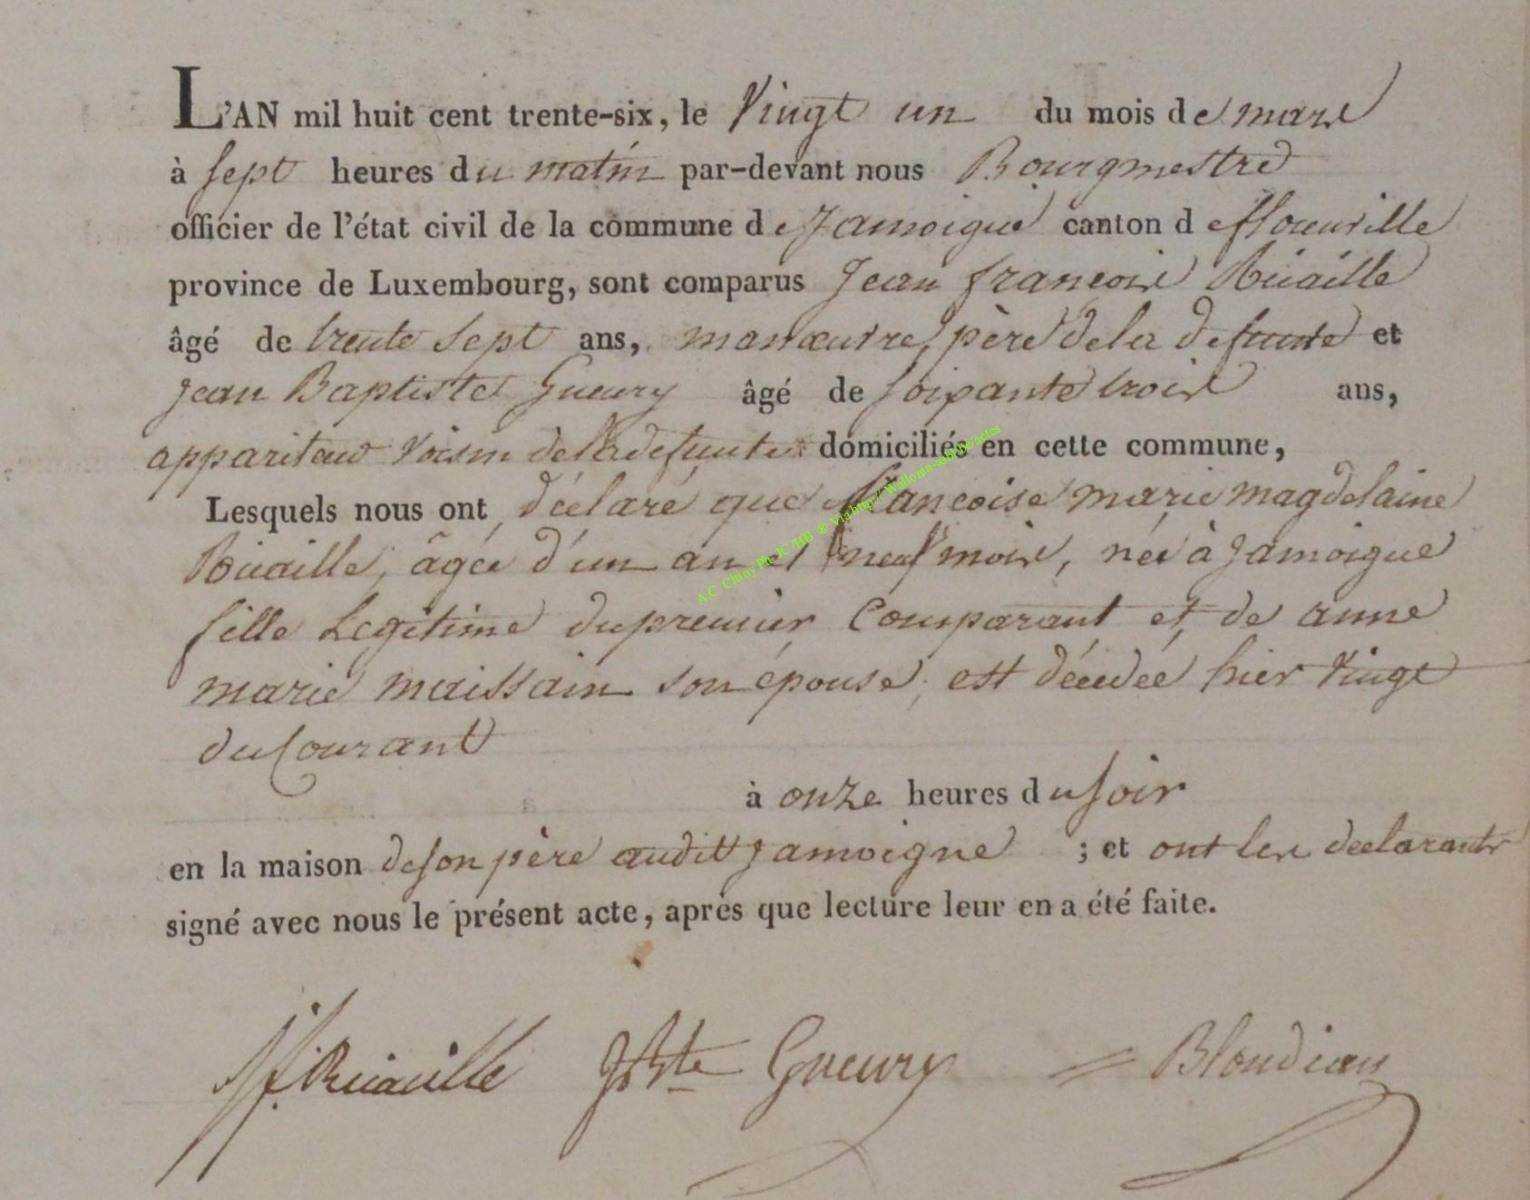 L'AN mil huit cent trente-six, le Vingt un du mois de mars
à sept heures du matin par-devant nous Bourgmestre
officier de l'état civil de la commune de Jamoigne canton de florenville
province de Luxembourg, sont comparus Jean françois Riaille
âgé de trente sept ans, manœuvre, père de la defunte et
Jean Baptiste Gueury âgé de soixante trois ans,
appariteur voisin de la defunte domiciliés en cette commune,
Lesquels nous ont déclaré que françoise marie magdelaine
Riaille, âgée d'un an et neuf mois, née à Jamoigne
fille Legitime du premier Comparant et de anne
marie maissain son épouse, est décédée hier vingt
du Courant
à onze heures du soir
en la maison de son père audit Jamoigne ; et ont les declarants
signé avec nous le présent acte, après que lecture leur en a été faite.
JF. Riaille JBte Gueury Blondiau